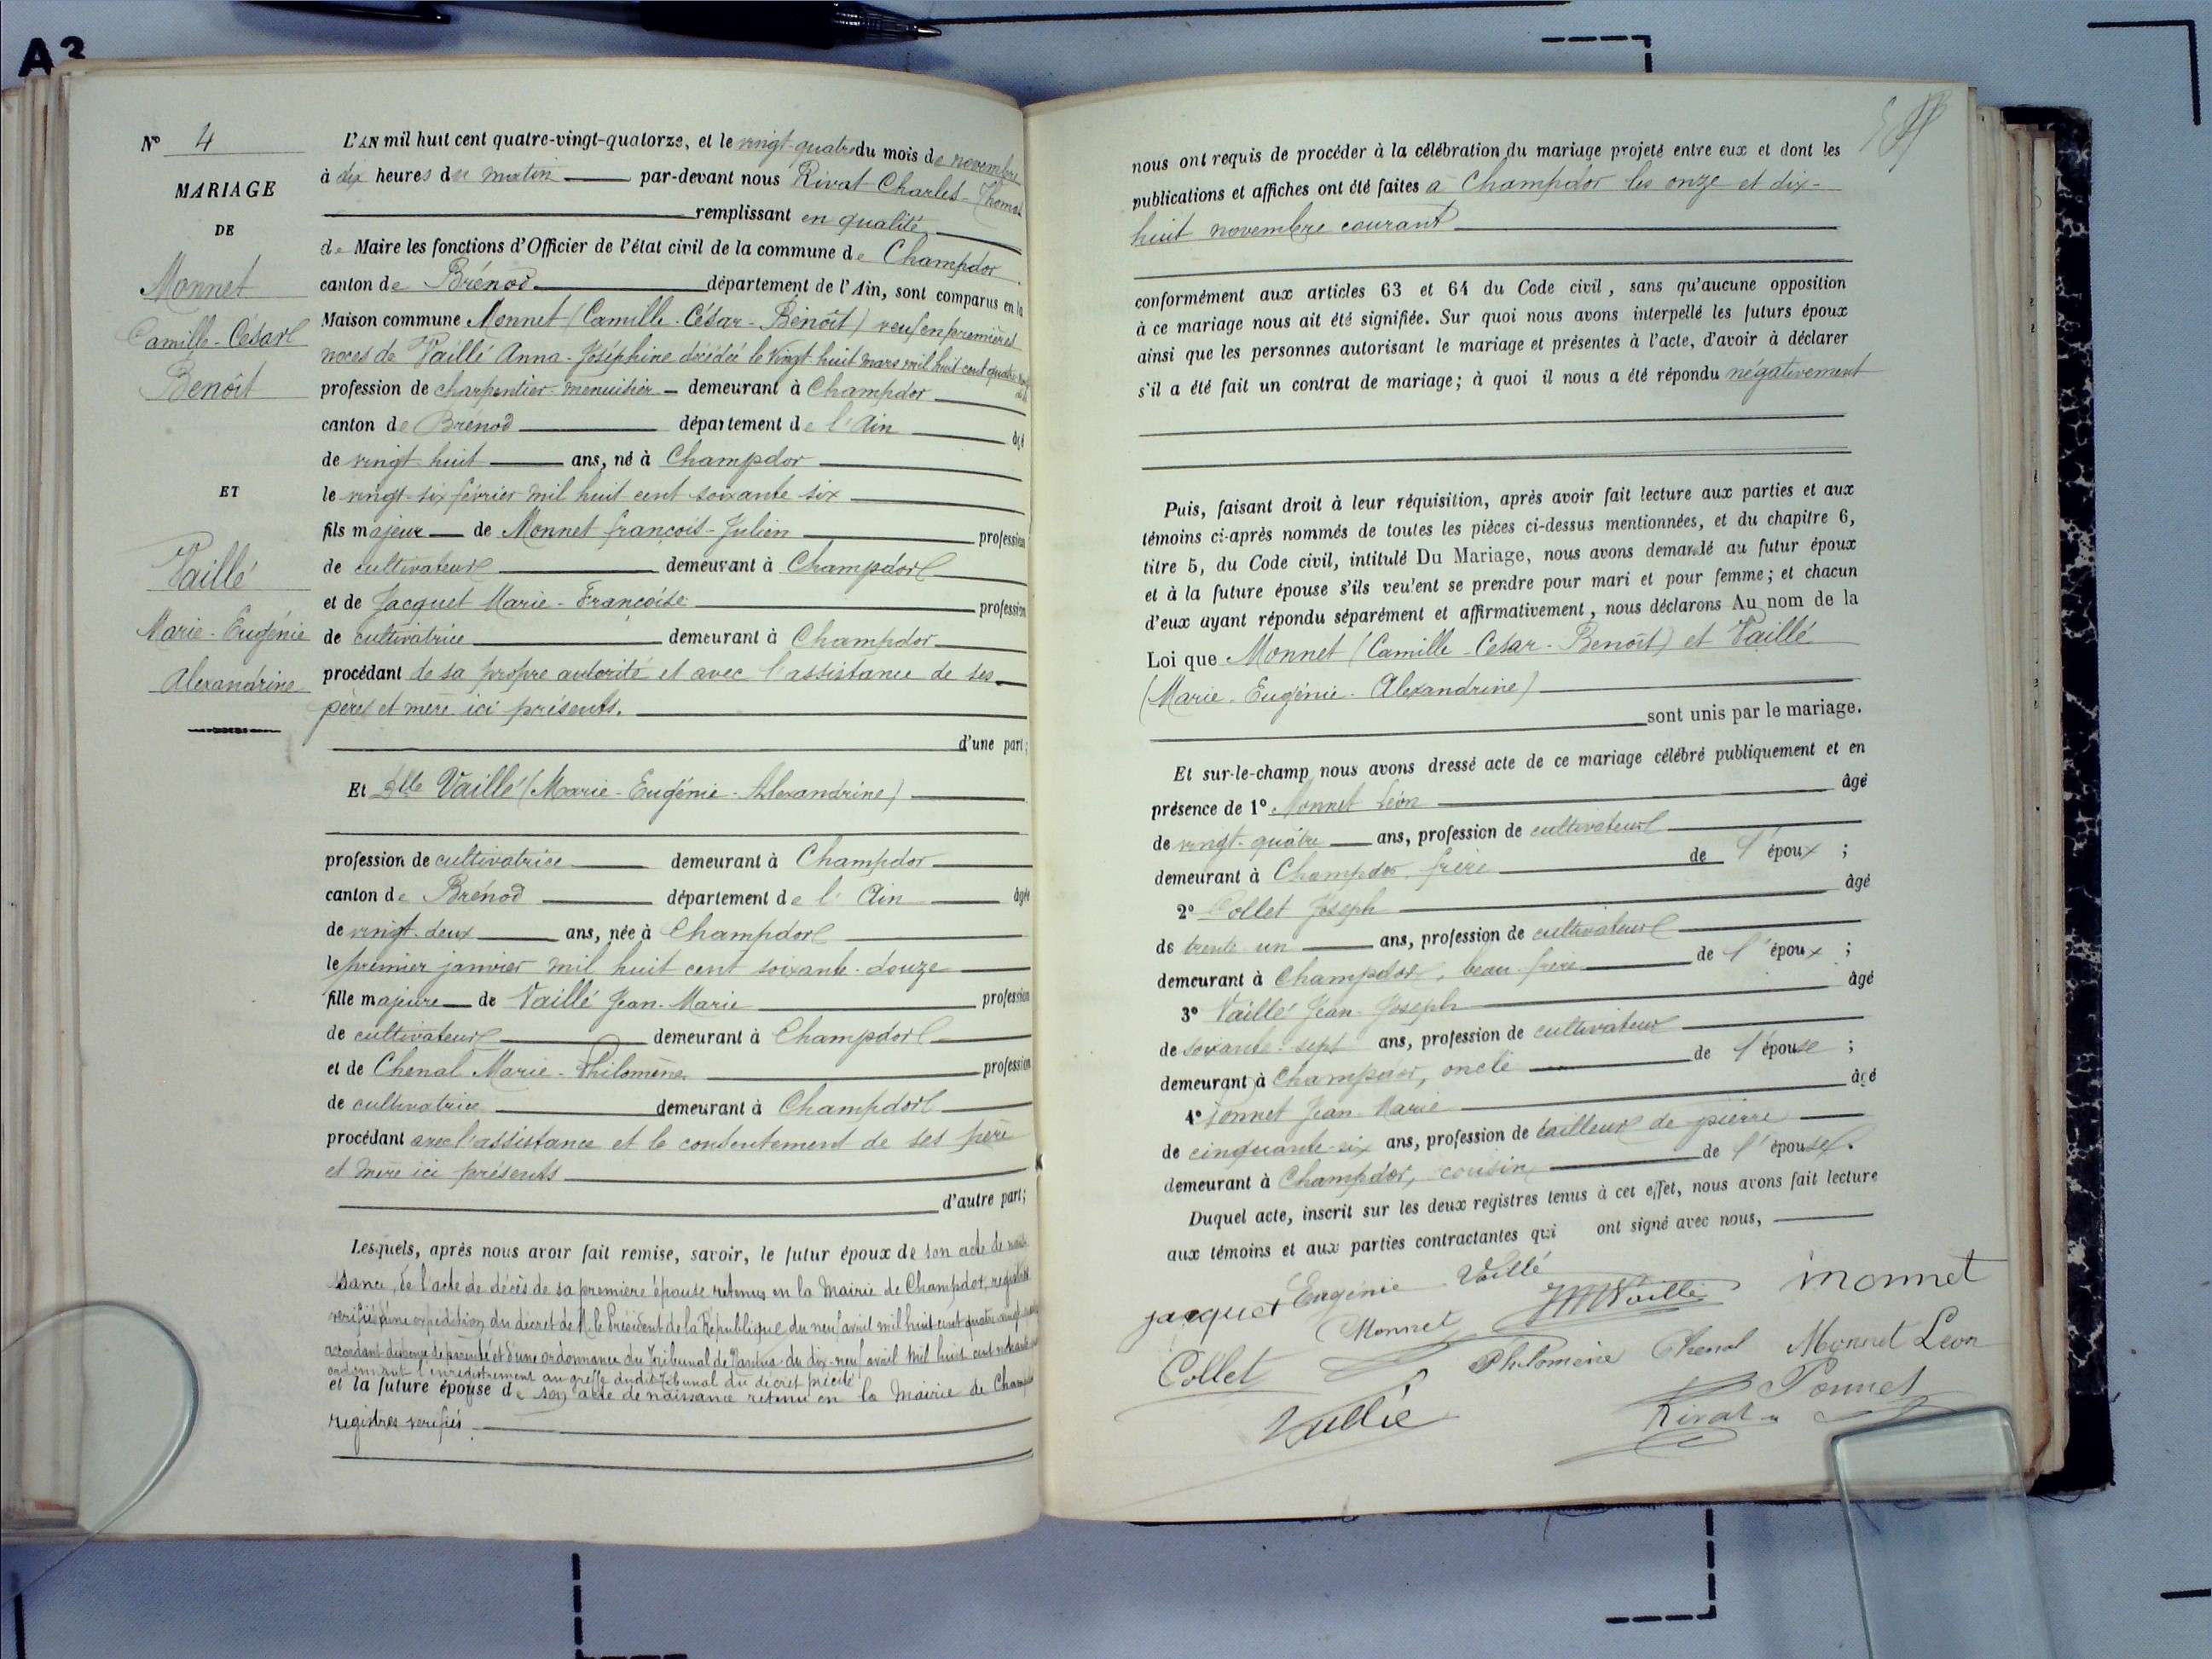 A3
N° 4
MARIAGE
DE
Monnet
Camille-César
Benoît
ET
Vaillé
Marie-Eugénie
Alexandrine
L'AN mil huit cent quatre-vingt-quatorze, et le vingt-quatre du mois de novembre
à dix heures du matin par-devant nous Rivat Charles-Thomas
remplissant en qualité
de Maire les fonctions d'Officier de l'état civil de la commune de Champdor
canton de Brénod département de l'Ain, sont comparus en la
Maison commune Monnet (Camille-César-Benoît) veuf en premières
noces de Vaillé Anna-Joséphine décédée le vingt-huit mars mil huit cent quatre
profession de charpentier-menuisier demeurant à Champdor
canton de Brénod département de l'Ain âgé
de vingt huit ans, né à Champdor
le vingt-six février mil huit cent soixante six
fils majeur de Monnet françois-Julien profession
de cultivateur demeurant à Champdor
et de Jacquet Marie-Françoise profession
de cultivatrice demeurant à Champdor
procédant de sa propre autorité et avec l'assistance de ses
père et mère ici présents.
d'une part;
Et Dlle Vaillé (Marie-Eugénie-Alexandrine)
profession de cultivatrice demeurant à Champdor
canton de Brénod département de l'Ain âgée
de vingt-deux ans, née à Champdor
le premier janvier mil huit cent soixante-douze
fille majeure de Vaillé Jean-Marie profession
de cultivateur demeurant à Champdor
et de Chenal Marie-Philomène profession
de cultivatrice demeurant à Champdor
procédant avec l'assistance et le consentement de ses père
et mère ici présents
d'autre part;
Lesquels, après nous avoir fait remise, savoir, le futur époux de son acte de nais
sance, de l'acte de décès de sa première épouse retenus en la Mairie de Champdor, registres
verifiés d'une expédition du décret de M. le Président de la République du neuf avril mil huit cent quatre vingt
accordant dispense de parenté et d'une ordonnance du Tribunal de Nantua du dix-neuf avril mil huit cent
ordonnant l'enregistrement au greffe dudit Tribunal du décret précité
et la future épouse de son acte de naissance retenu en la Mairie de Champdor
registres verifiés
nous ont requis de procéder à la célébration du mariage projeté entre eux et dont les
publications et affiches ont été faites à Champdor les onze et dix-
huit novembre courant
conformément aux articles 63 et 64 du Code civil, sans qu'aucune opposition
à ce mariage nous ait été signifiée. Sur quoi nous avons interpellé les futurs époux
ainsi que les personnes autorisant le mariage et présentes à l'acte, d'avoir à déclarer
s'il a été fait un contrat de mariage; à quoi il nous a été répondu négativement
Puis, faisant droit à leur réquisition, après avoir fait lecture aux parties et aux
témoins ci-après nommés de toutes les pièces ci-dessus mentionnées, et du chapitre 6,
titre 5, du Code civil, intitulé Du Mariage, nous avons demandé au futur époux
et à la future épouse s'ils veulent se prendre pour mari et pour femme; et chacun
d'eux ayant répondu séparément et affirmativement, nous déclarons Au nom de la
Loi que Monnet (Camille-Cesar-Benoît) et Vaillé
(Marie-Eugénie-Alexandrine)
sont unis par le mariage.
Et sur-le-champ nous avons dressé acte de ce mariage célébré publiquement et en
présence de 1° Monnet Léon âgé
de vingt-quatre ans, profession de cultivateur
demeurant à Champdor, frère de l'époux ;
2° Collet Joseph âgé
de trente un ans, profession de cultivateur
demeurant à Champdor, beau-frère de l'époux ;
3° Vaillé Jean-Joseph âgé
de soixante-sept ans, profession de cultivateur
demeurant à Champdor, oncle de l'épouse ;
4° Ponnet Jean-Marie âgé
de cinquante-six ans, profession de tailleur de pierre
demeurant à Champdor, cousin de l'épouse.
Duquel acte, inscrit sur les deux registres tenus à cet effet, nous avons fait lecture
aux témoins et aux parties contractantes qui ont signé avec nous,
jacquet Eugénie Vaillé JMVaillé monnet
Monnet
Collet Philomène Chenal Monnet Léon
Ponnet
Vallié Rivat